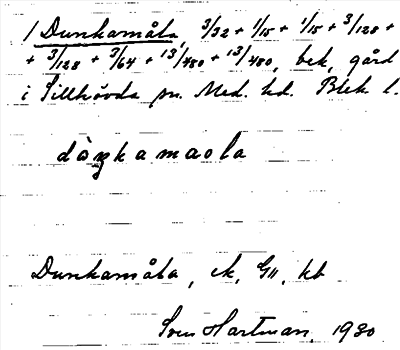 1 Dunkamåla, 3/32 + 1/15 + 1/15 + 3/128 +
+ 3/128 + 3/64 + 13/480 + 13/480, bek, gård
i Sillhövda sn. Med. hd. Blek l.
dåŋkamaola
Dunkamåla, ek, G11, kb
Sven Hartman 1930